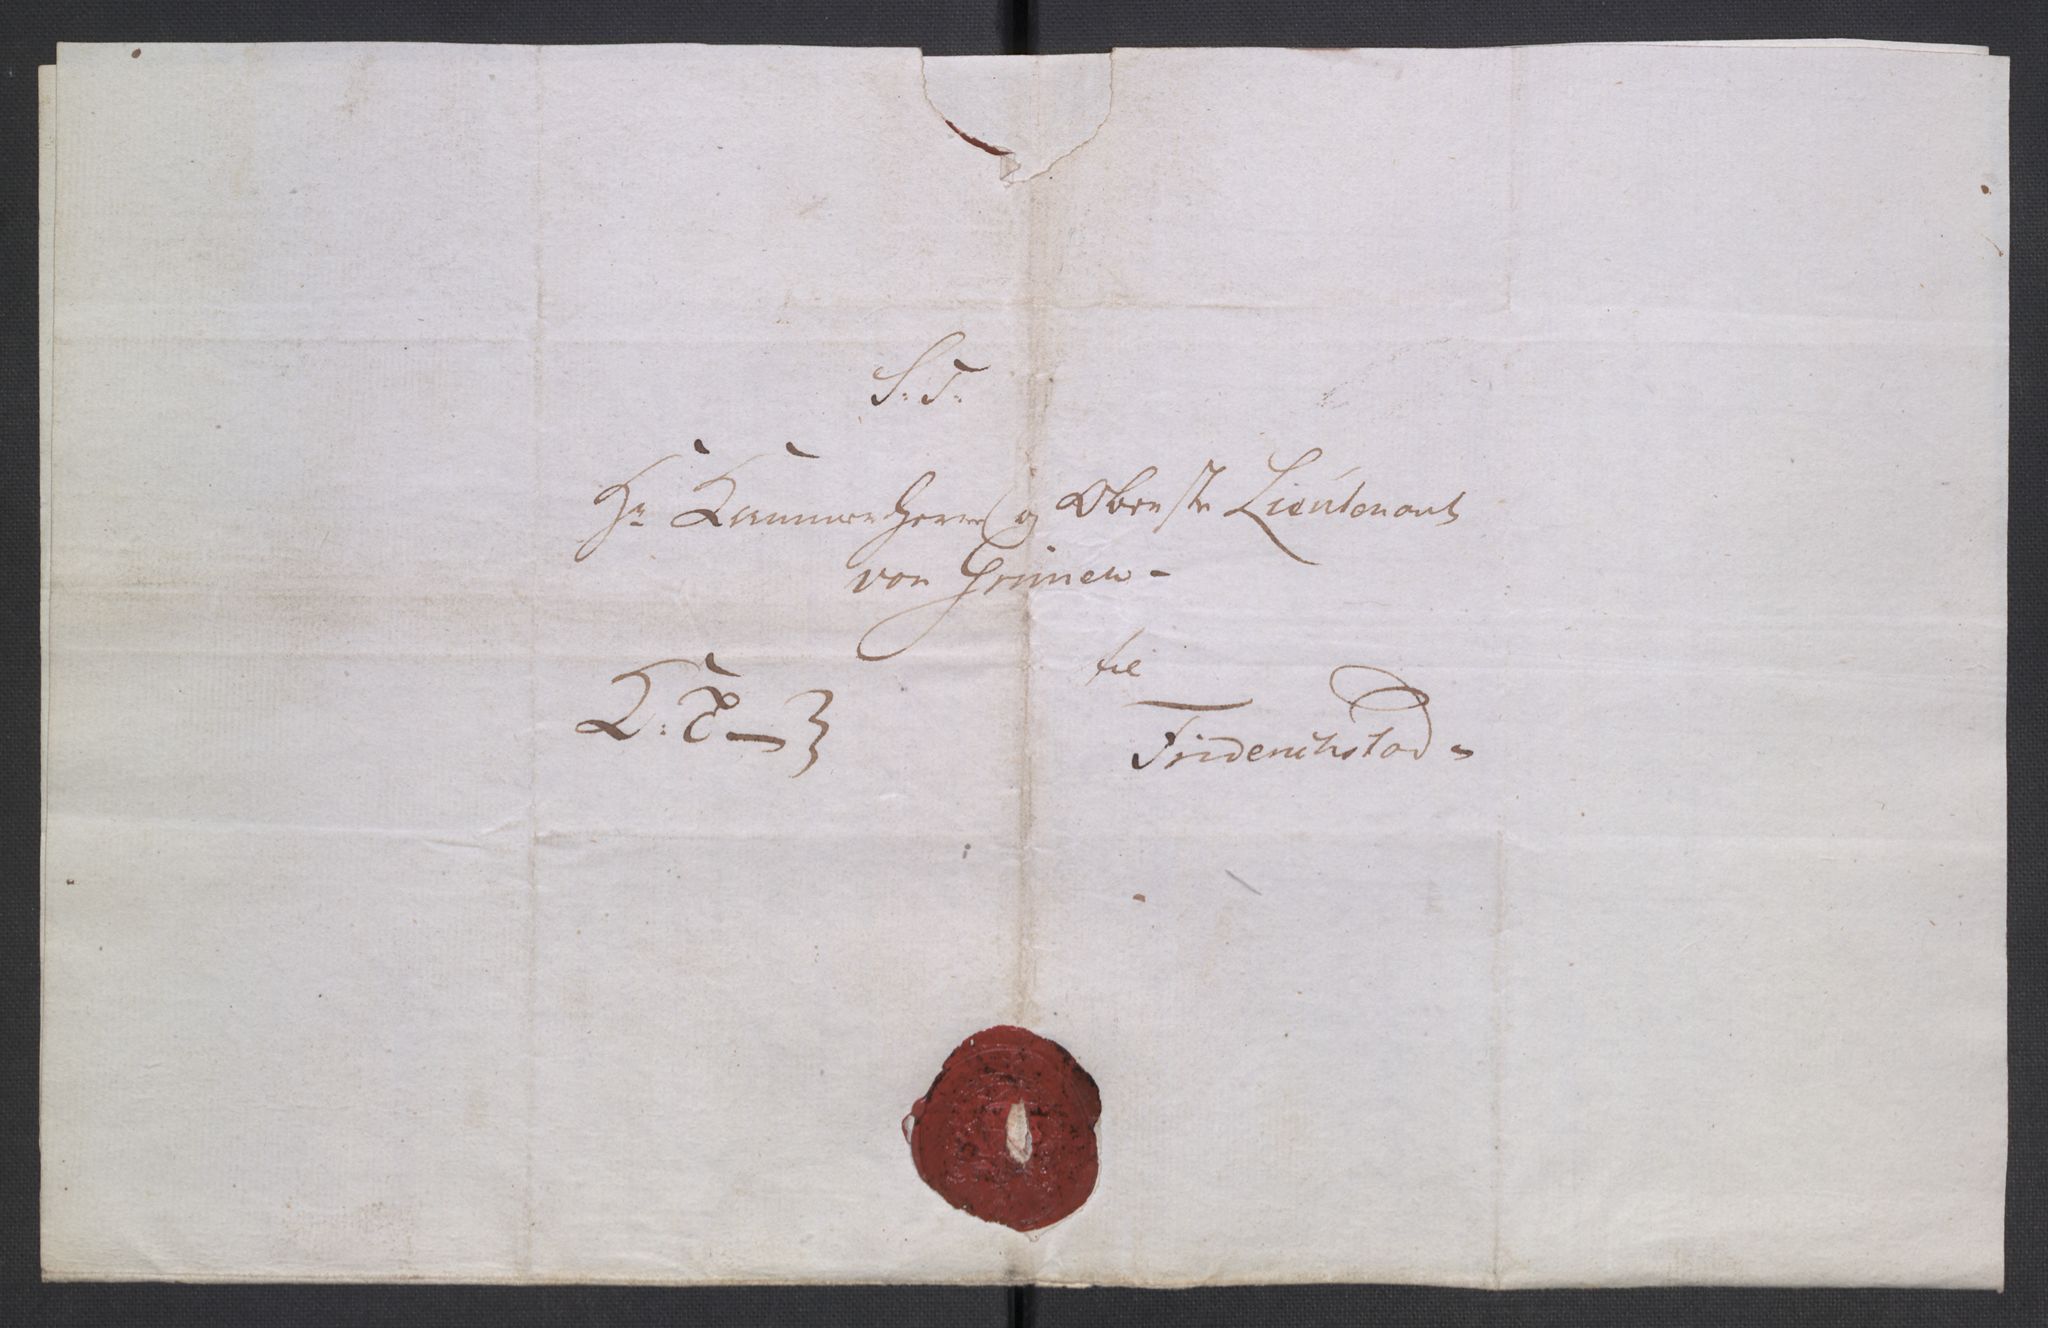 S: T:
Hr Kammerherre og Obriste Lieutenant
von Grüner -
til
K: T —
Friderichstad -